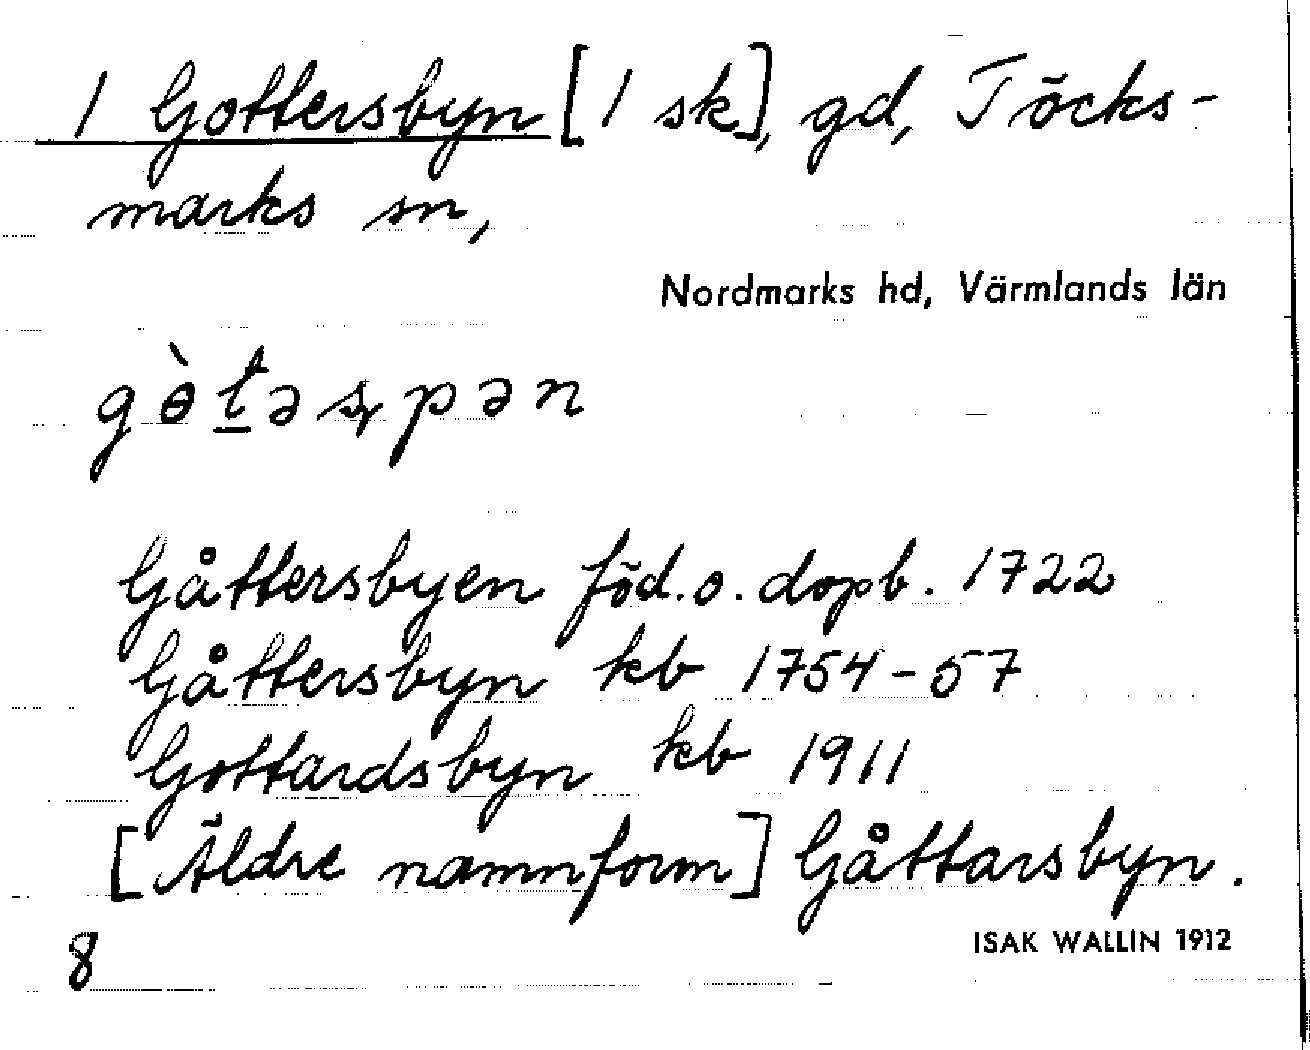 1 Gottersbyn [1 sk], gd, Töcks-
marks sn,
Nordmarks hd, Värmlands län
gɵ̀t̲əʂpən
Gåttersbyen föd. o. dopb. 1722
Gåttersbyn kb 1754-57
Gottardsbyn kb 1911
[Äldre namnform] Gåttarsbyn.
8
ISAK WALLIN 1912